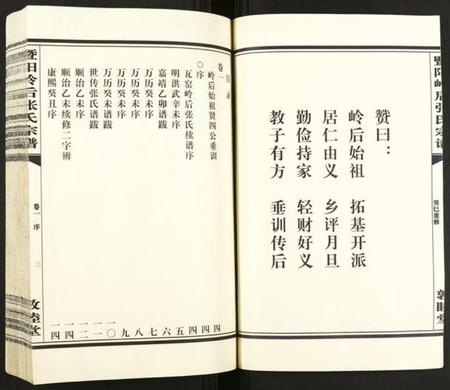 暨阳岭后张氏宗谱
癸巳重修
敦睦堂
赞曰：
岭后始祖 拓基开派
居仁由义 乡评月旦
勤俭持家 轻财好义
教子有方 垂训传后
卷一
岭后始祖贤四公垂训
〇序
瓦窑岭后张氏续谱序
明洪武辛未序
嘉靖乙卯谱跋
万历癸未序
万历癸未序
万历癸未跋
世传张氏谱跋
顺治乙未序
顺治乙未续修二字辨
康熙癸丑序
暨阳岭后张氏宗谱
卷一 序 三
敦睦堂